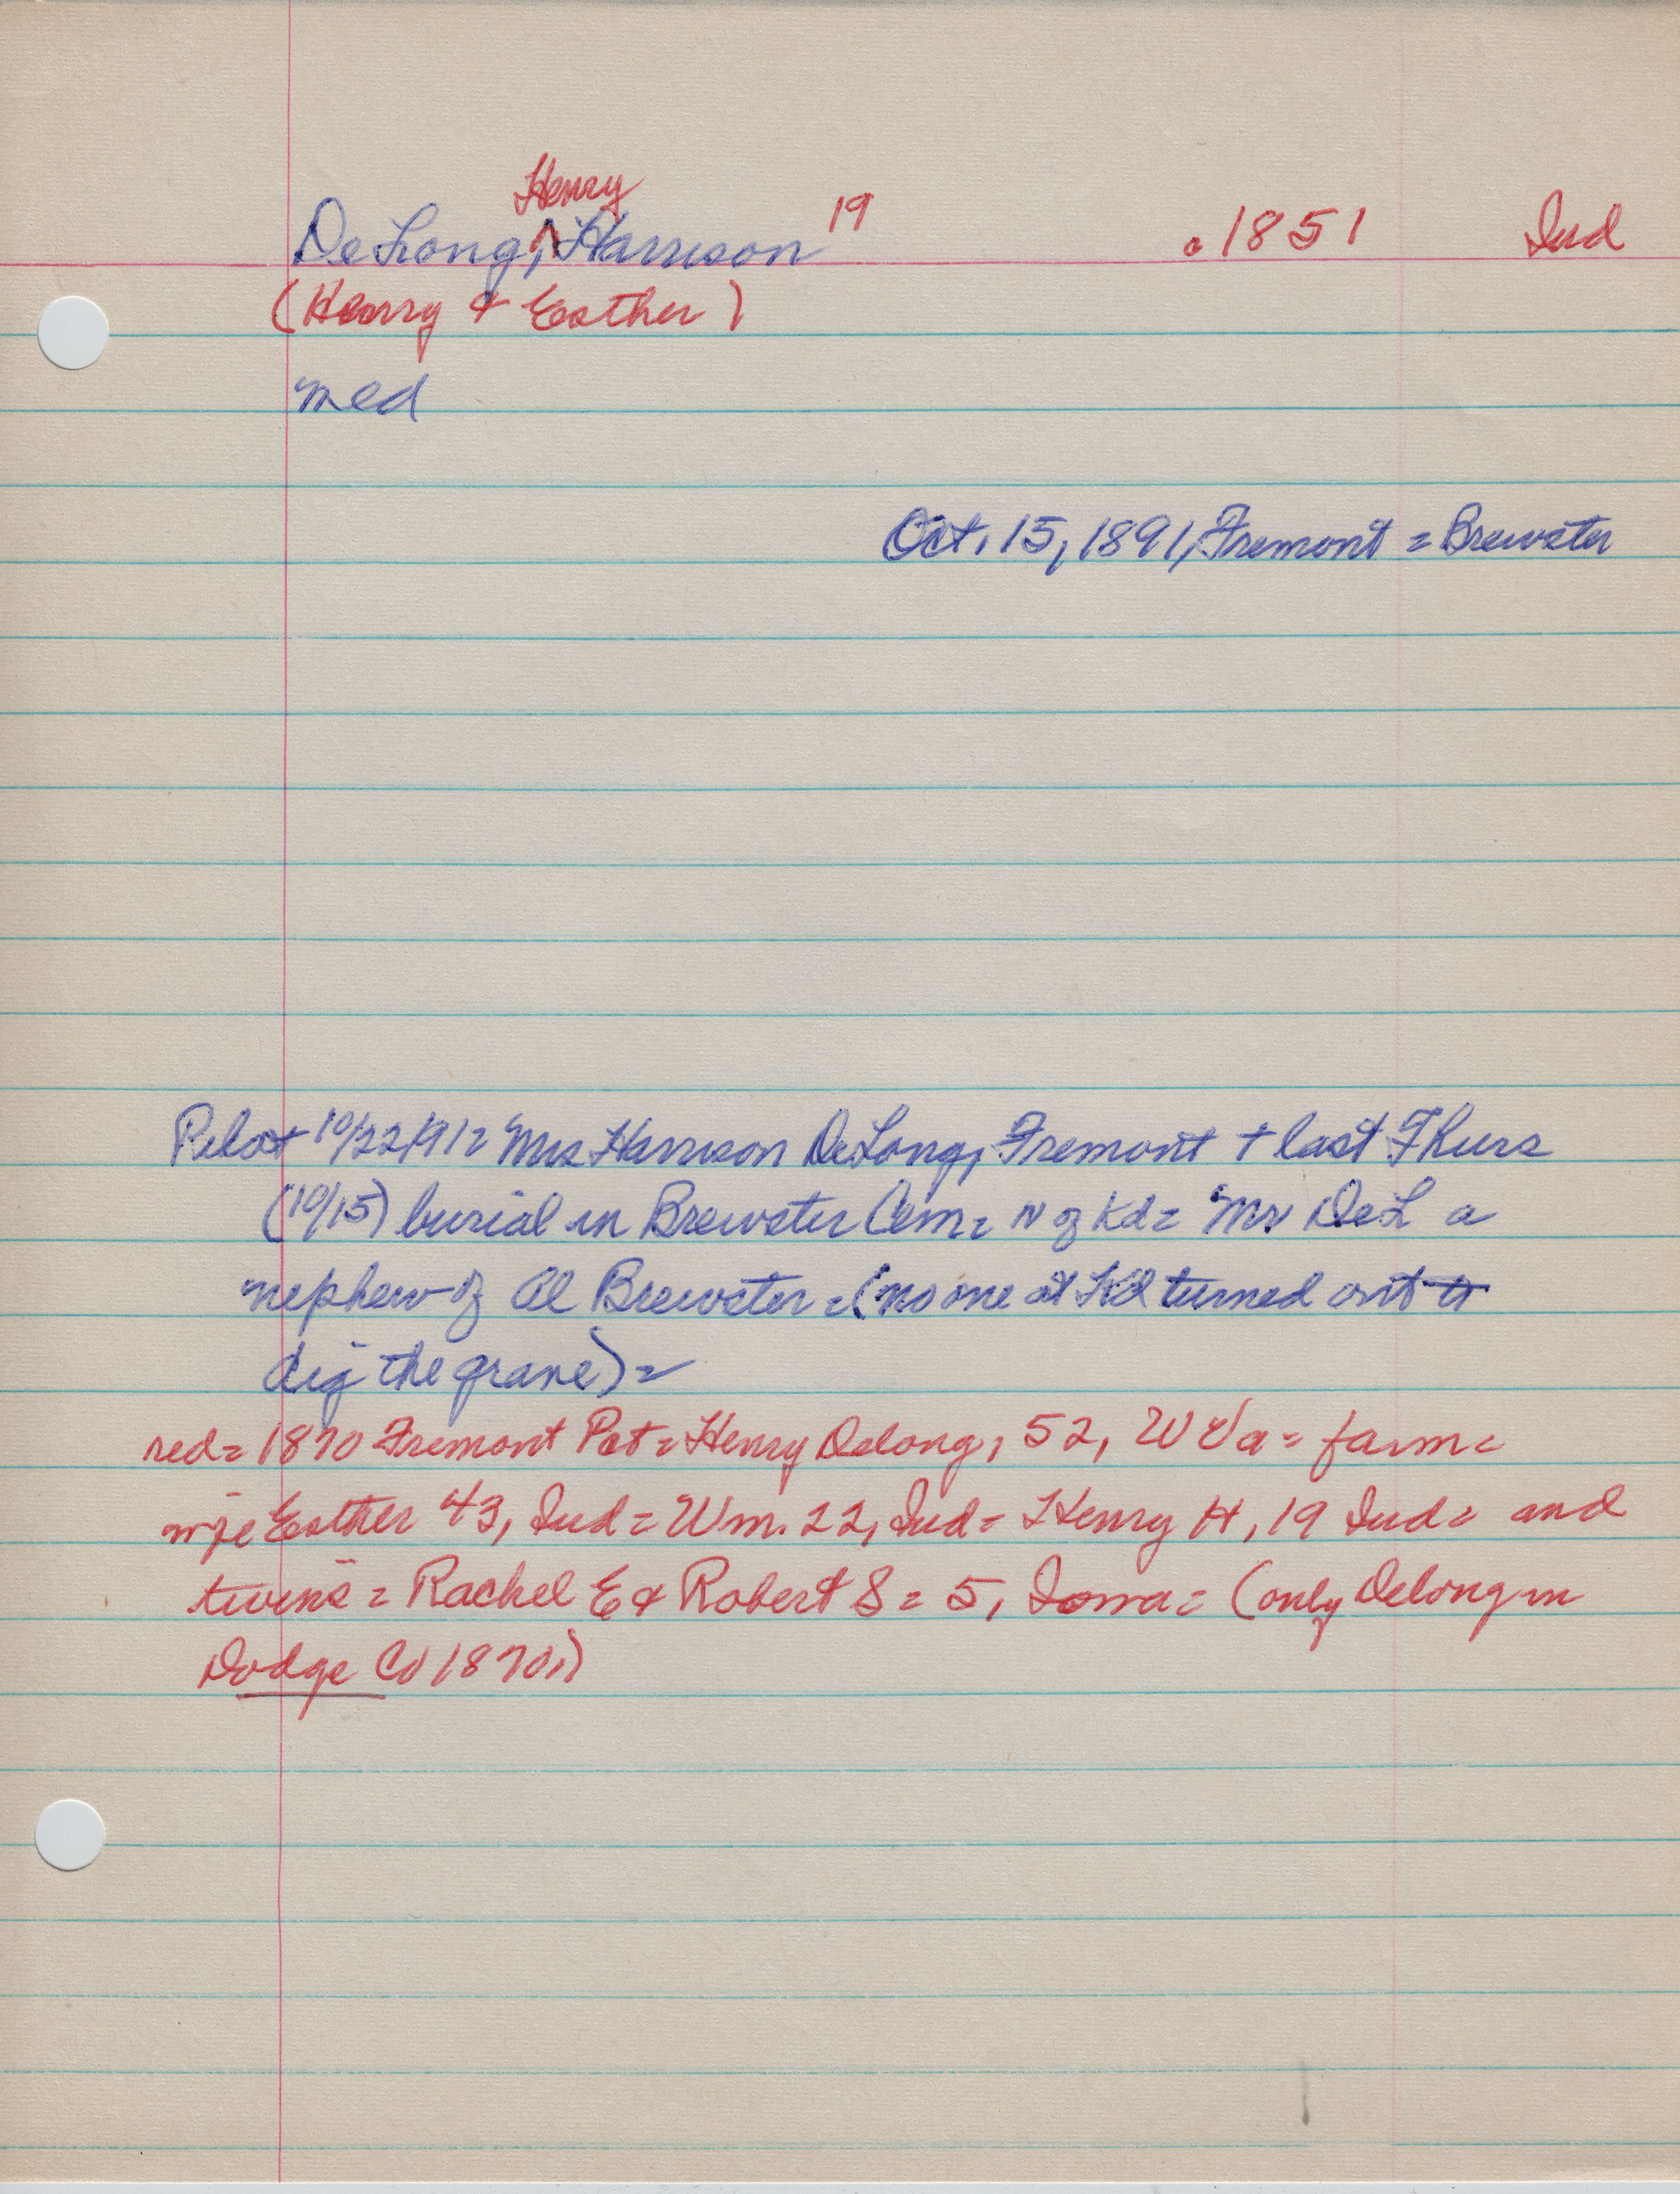 Henry
DeLong, ^ Harrison 19 c 1851 Ind
(Henry & Esther)
med
Oct. 15, 1891, Fremont = Brewster
Pilot 10/22/91= Mrs Harrison DeLong, Fremont + last Thurs
(10/15) burial in Brewster Cem= N of Kd= Mr DeL a
nephew of Al Brewster = (no one at Kd turned out to
dig the grave) =
red= 1870 Fremont Pct= Henry Delong, 52, W Va = farm=
wife Esther 43, Ind = Wm. 22, Ind = Henry H, 19 Ind= and
twins = Rachel E & Robert S = 5, Iowa= (only Delong in
Dodge Co 1870.)